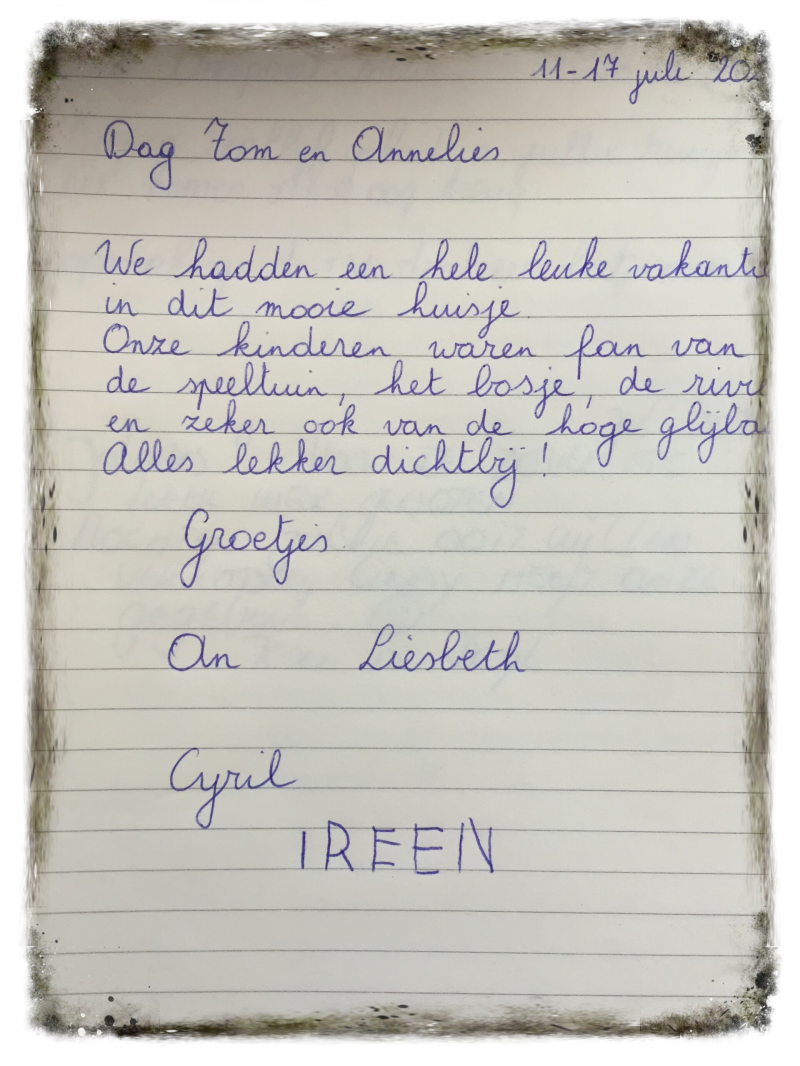 11-17 juli 20
Dag Tom en Annelies
We hadden een hele leuke vakanti
in dit mooie huisje.
Onze kinderen waren fan van
de speeltuin, het bosje, de rivi
en zeker ook van de hoge glijba
Alles lekker dichtbij!
Groetjes
An Liesbeth
Cyril
IREEN